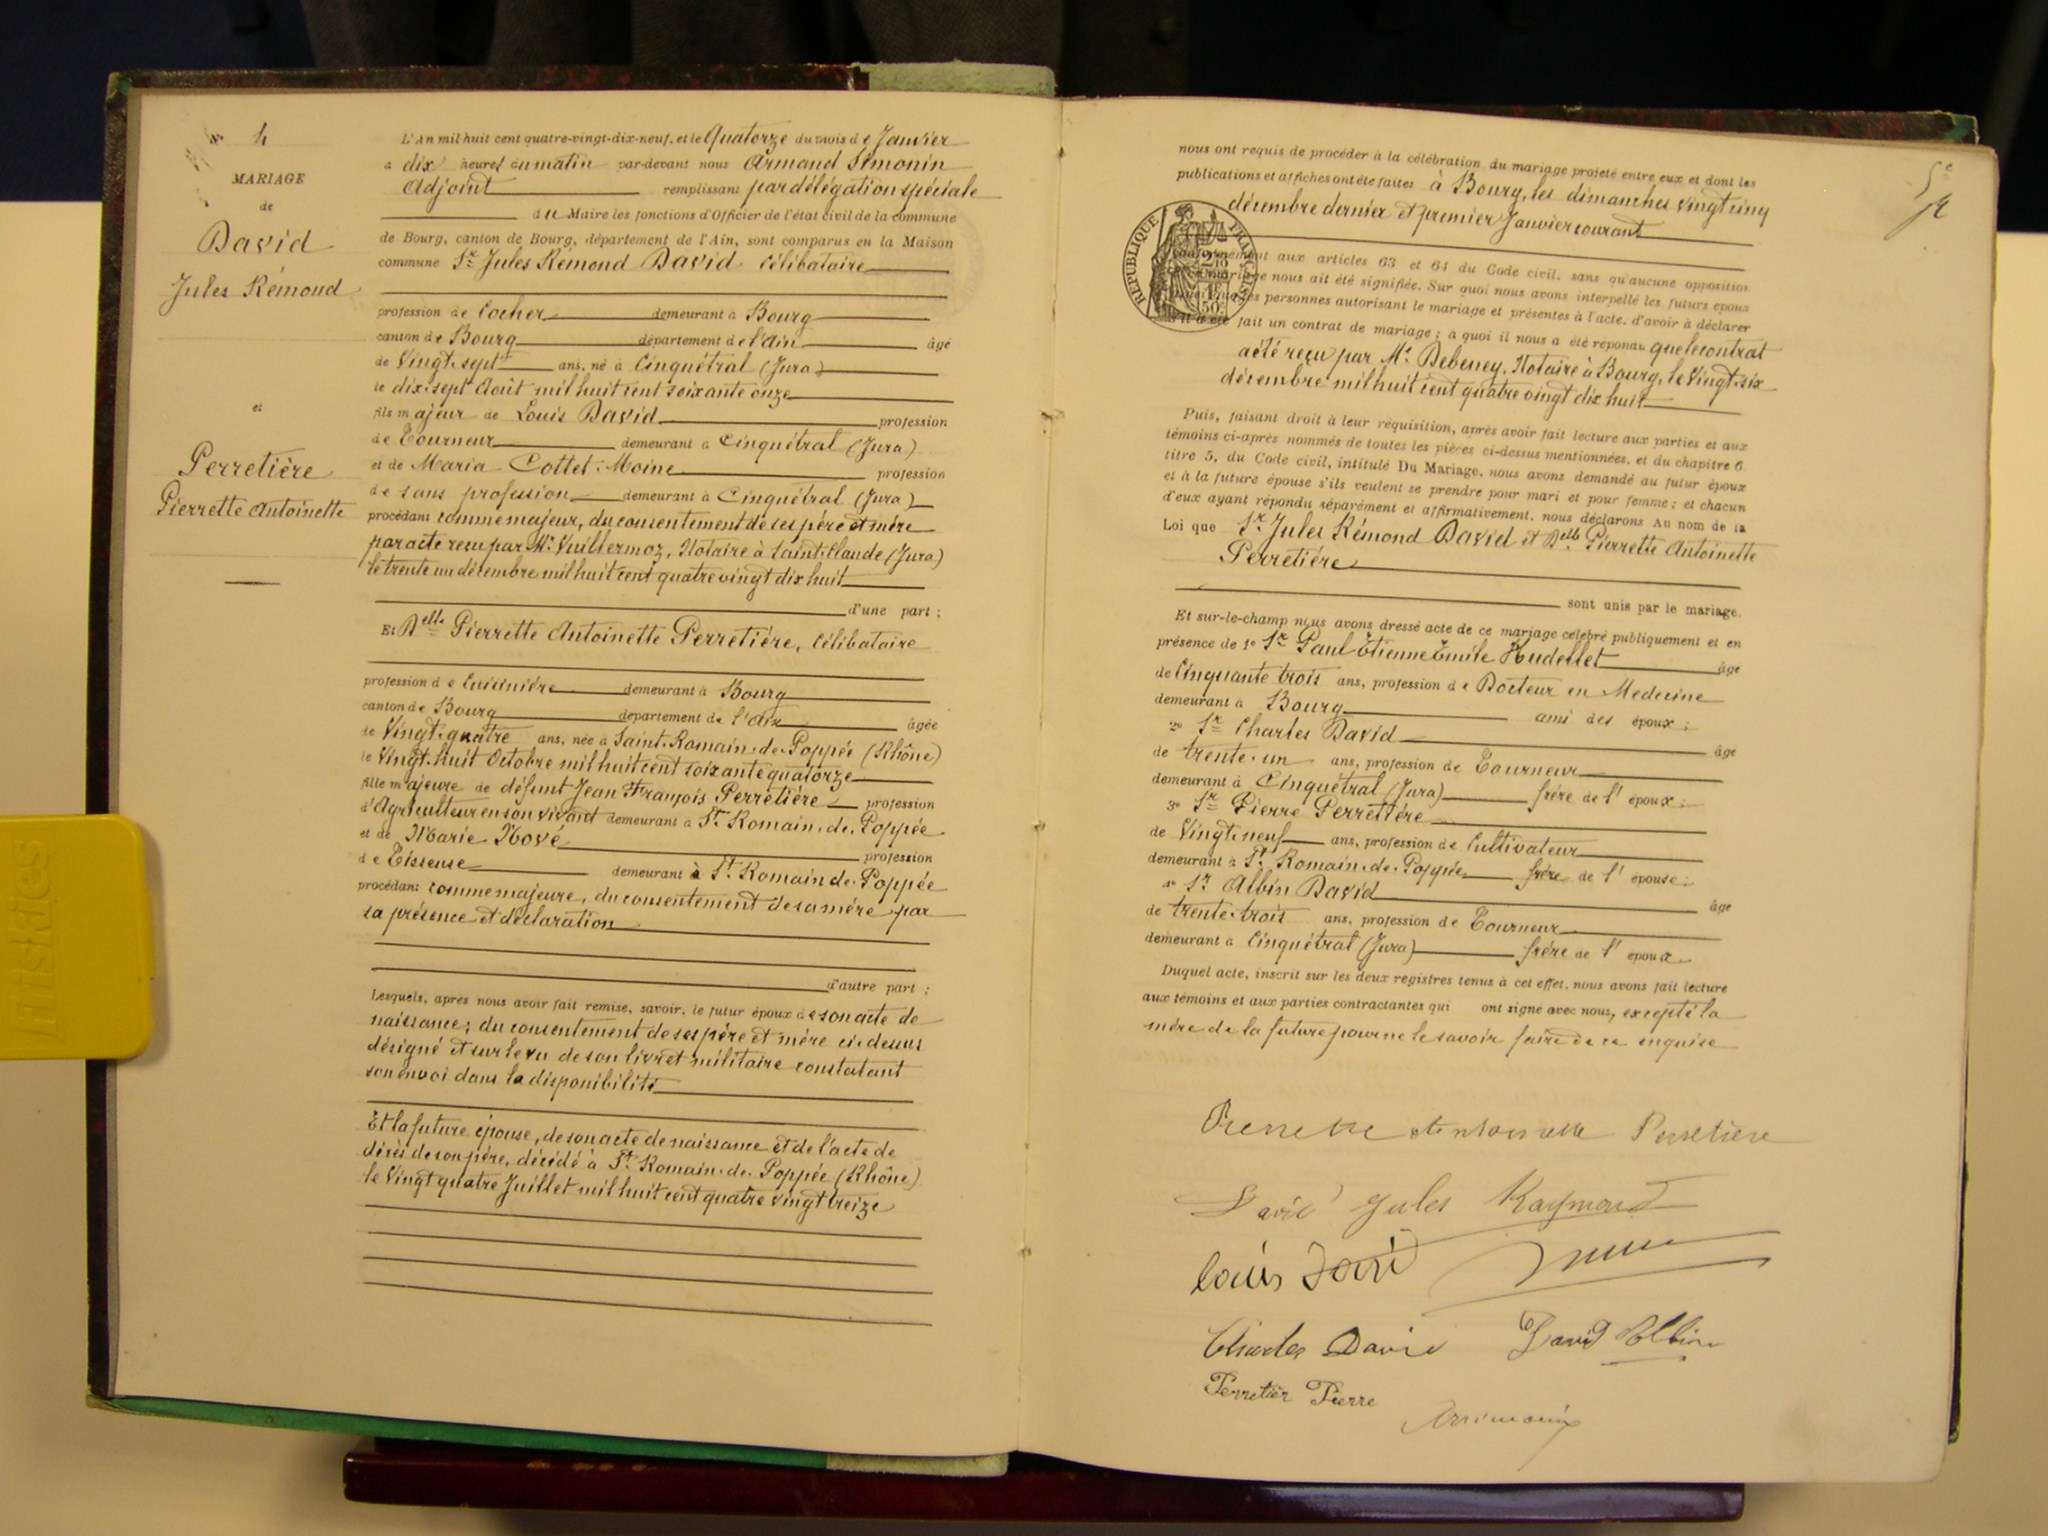 N° 4
MARIAGE
de
David
Jules Rémond
et
Perretière
Pierrette Antoinette
L'An mil huit cent quatre-vingt-dix-neuf, et le Quatorze du mois de Janvier
à dix heures du matin par-devant nous Armand Simonin
Adjoint remplissant par délégation spéciale
du Maire les fonctions d'Officier de l'état civil de la commune
de Bourg, canton de Bourg, département de l'Ain, sont comparus en la Maison
commune Sr Jules Rémond David célibataire
profession de Cocher demeurant à Bourg
canton de Bourg département de l'Ain âgé
de Vingt-sept ans, né à Cinquétral (Jura)
le dix-sept Août mil huit cent soixante onze
fils majeur de Louis David profession
de Tourneur demeurant à Cinquétral (Jura)
et de Maria Cottet-Moine profession
de sans profession demeurant à Cinquétral (Jura)
procédant comme majeur, du consentement de ses père et mère
par acte reçu par Me Vuillermoz, Notaire à Saint-Claude (Jura)
le trente un décembre mil huit cent quatre vingt dix huit
d'une part ;
Et Delle Pierrette Antoinette Perretière, célibataire
profession de Cuisinière demeurant à Bourg
canton de Bourg département de l'Ain âgée
de Vingt-quatre ans, née à Saint-Romain-de-Poppée (Rhône)
le Vingt-huit Octobre mil huit cent soixante quatorze
fille majeure de défunt Jean François Perretière profession
d'Agriculteur en son vivant demeurant à St Romain-de-Poppée
et de Marie Nové profession
de Tisseuse demeurant à St Romain de Poppée
procédant comme majeure, du consentement de sa mère par
sa présence et déclaration
d'autre part ;
Lesquels, après nous avoir fait remise, savoir, le futur époux de son acte de
naissance ; du consentement de ses père et mère ci-dessus
désigné et sur le vu de son livret militaire constatant
son envoi dans la disponibilité
Et la future épouse, de son acte de naissance et de l'acte de
décès de son père, décédé à St Romain-de-Poppée (Rhône)
le Vingt quatre Juillet mil huit cent quatre vingt treize
nous ont requis de procéder à la célébration du mariage projeté entre eux et dont les
publications et affiches ont été faites à Bourg, les dimanches vingt cinq
décembre dernier et premier Janvier courant
RÉPUBLIQUE FRANÇAISE
aux articles 63 et 64 du Code civil, sans qu'aucune opposition
nous ait été signifiée. Sur quoi nous avons interpellé les futurs époux
personnes autorisant le mariage et présentes à l'acte, d'avoir à déclarer
s'il a été fait un contrat de mariage ; à quoi il nous a été répondu que le contrat
a été reçu par Me Debeney, Notaire à Bourg, le Vingt-six
décembre mil huit cent quatre vingt dix huit
Puis, faisant droit à leur réquisition, après avoir fait lecture aux parties et aux
témoins ci-après nommés de toutes les pièces ci-dessus mentionnées, et du chapitre 6
titre 5, du Code civil, intitulé Du Mariage, nous avons demandé au futur époux
et à la future épouse s'ils veulent se prendre pour mari et pour femme ; et chacun
d'eux ayant répondu séparément et affirmativement, nous déclarons Au nom de la
Loi que Sr Jules Rémond David et Delle Pierrette Antoinette
Perretière
sont unis par le mariage.
Et sur-le-champ nous avons dressé acte de ce mariage célébré publiquement et en
présence de 1° Sr Paul Etienne Emile Hudellet âgé
de Cinquante trois ans, profession de Docteur en Médecine
demeurant à Bourg ami des époux ;
2° Sr Charles David âgé
de trente-un ans, profession de Tourneur
demeurant à Cinquétral (Jura) frère de l'époux ;
3° Sr Pierre Perretière
de Vingt-neuf ans, profession de Cultivateur
demeurant à St Romain-de-Poppée frère de l'épouse ;
4° Sr Albin David âgé
de trente-trois ans, profession de Tourneur
demeurant à Cinquétral (Jura) frère de l'époux.
Duquel acte, inscrit sur les deux registres tenus à cet effet, nous avons fait lecture
aux témoins et aux parties contractantes qui ont signé avec nous, excepté la
mère de la future pour ne le savoir faire de ce enquise
Pierrette Antoinette Perretière
David Jules Raymond
Louis David
Charles David David Albin
Perretièr Pierre
Arsimonin